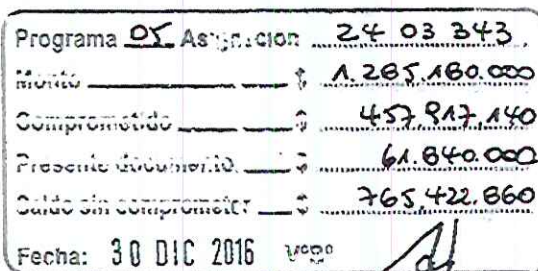 Programa 05 Asignación 24 03 343
Monto $ 1.285.180.000
Comprometido $ 457.917.140
Presente documento $ 61.840.000
Saldo sin comprometer $ 765.422.860
Fecha: 30 DIC 2016 VºBº